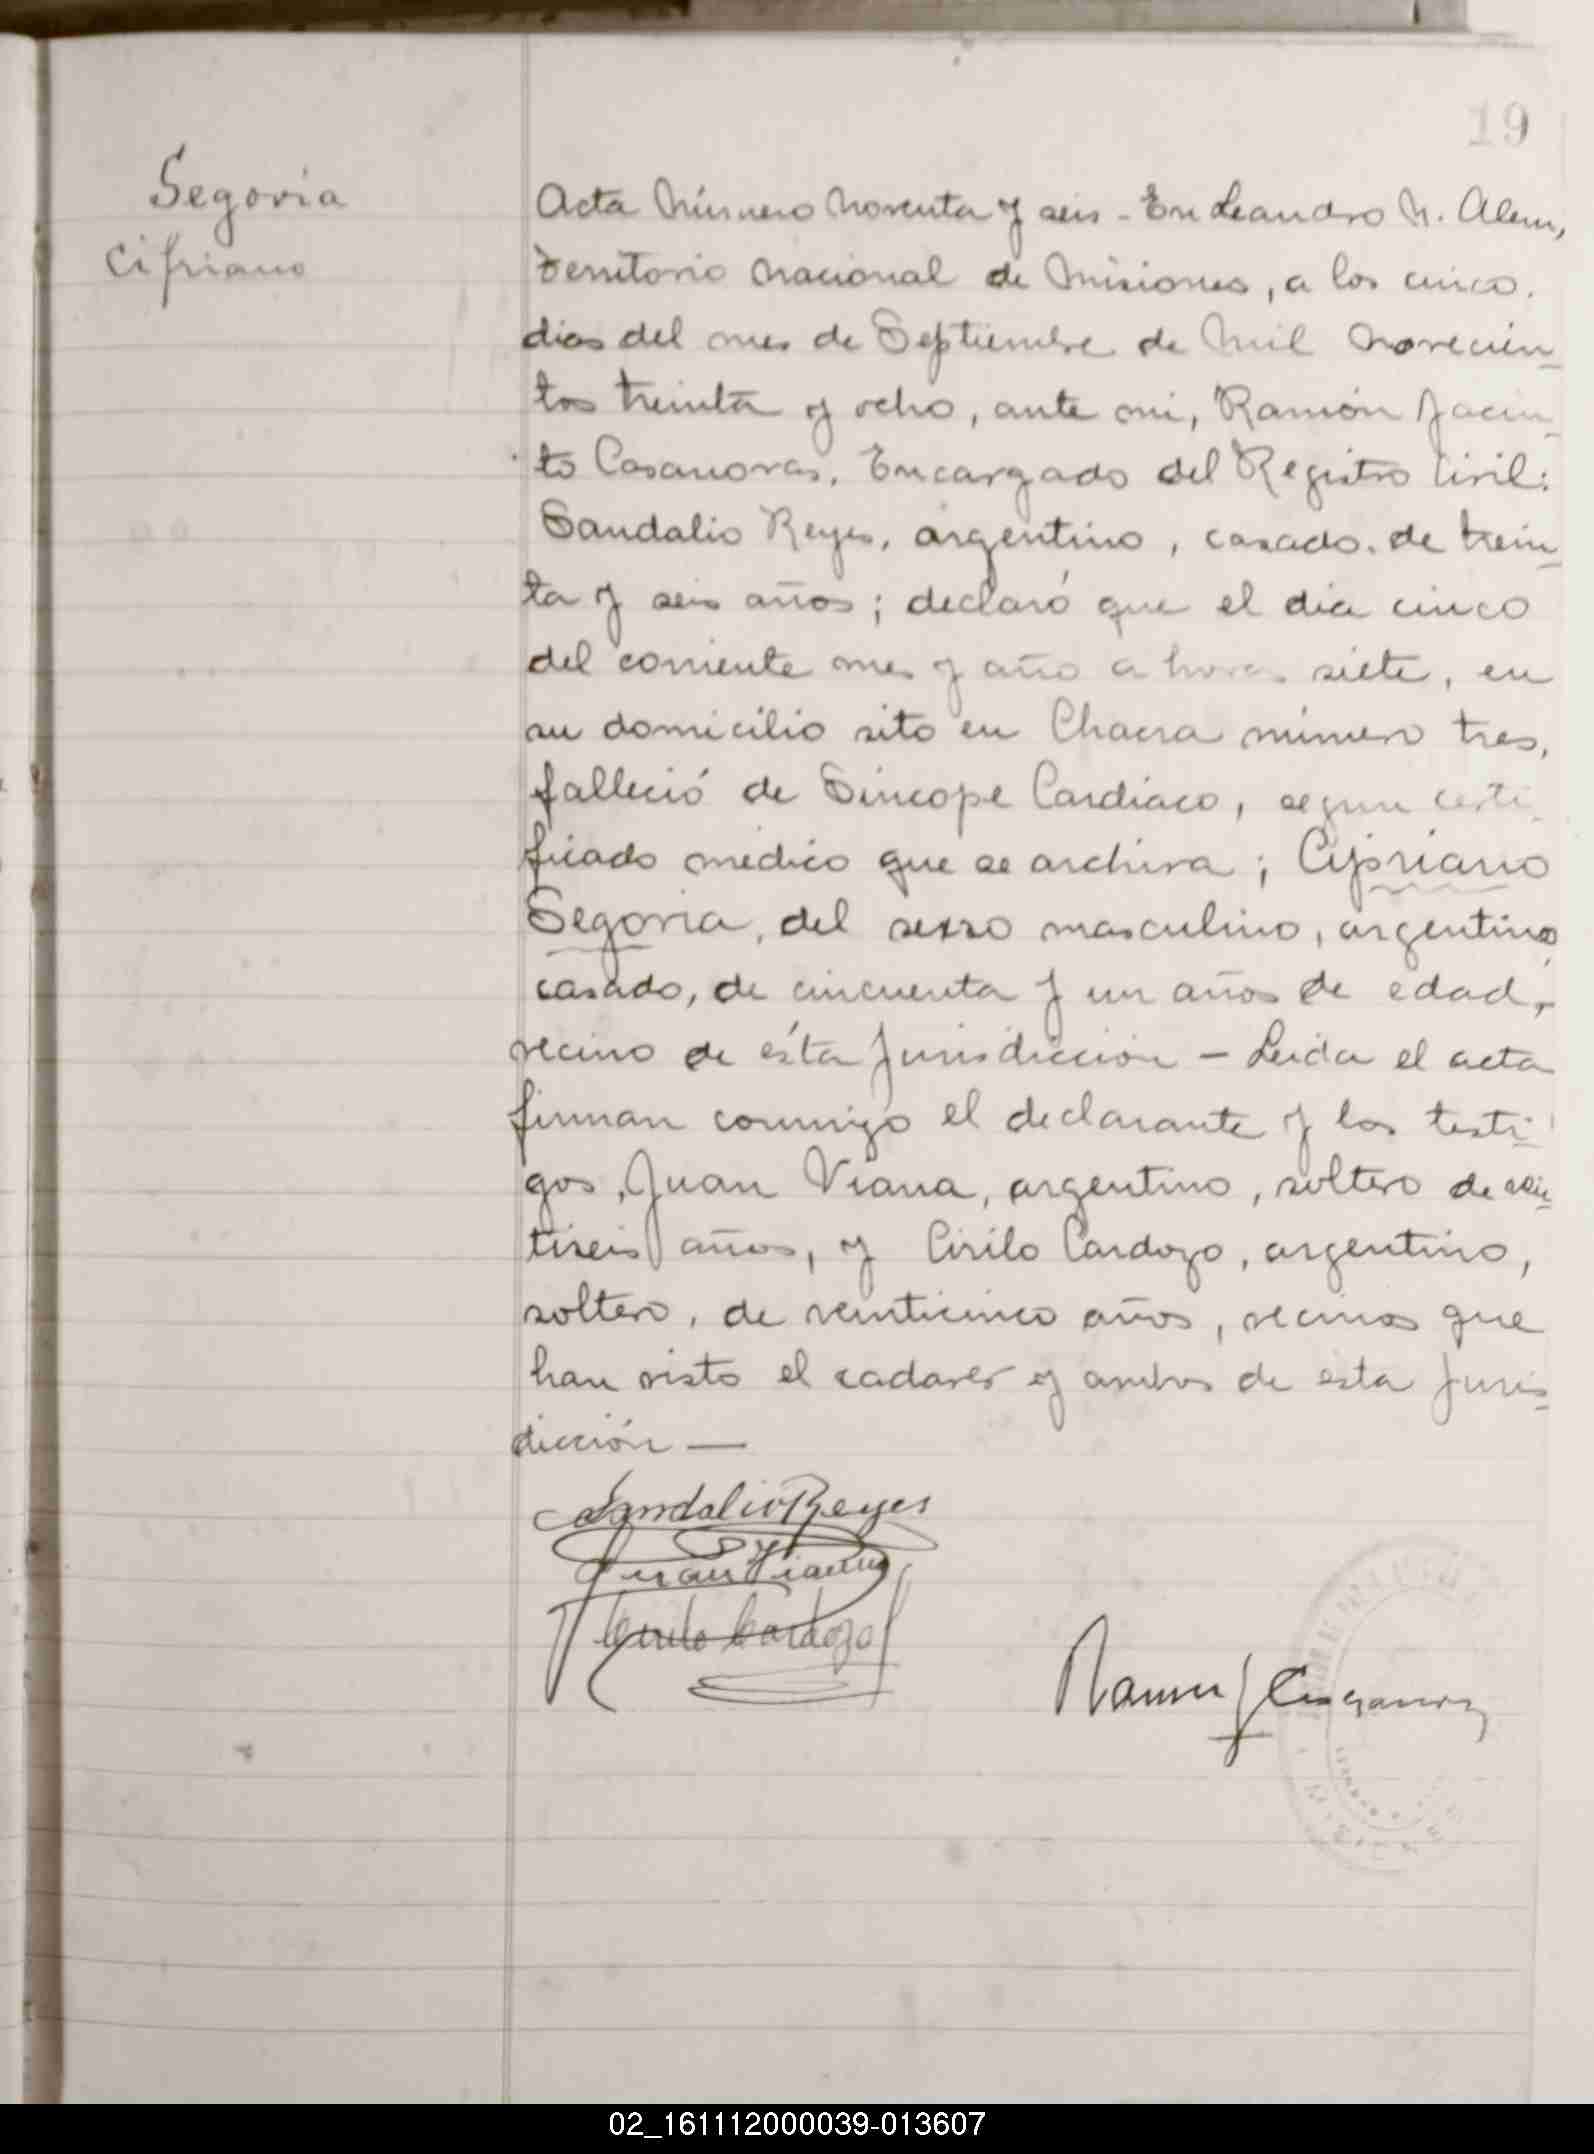 19
Segovia
Cipriano
Acta Número Noventa y seis - En Leandro N. Alem,
Territorio Nacional de Misiones, a los cinco
dias del mes de Septiembre de Mil Novecien-
tos treinta y ocho, ante mi, Ramón Jacin-
to Casanovas, Encargado del Registro Civil:
Sandalio Reyes, argentino, casado, de trein-
ta y seis años; declaró que el dia cinco
del corriente mes y año a horas siete, en
su domicilio sito en Chacra número tres,
falleció de Síncope Cardíaco, segun certi-
ficado médico que se archiva; Cipriano
Segovia, del sexso masculino, argentino,
casado, de cincuenta y un años de edad,
vecino de ésta Jurisdicción - Leida el acta
firman conmigo el declarante y los testi-
gos, Juan Viana, argentino, soltero de vein-
tiseis años, y Cirilo Cardozo, argentino,
soltero, de veinticinco años, vecinos que
han visto el cadaver y ambos de esta Juris-
dicción —
Sandalio Reyes
Juan Viana
Cirilo Cardozo
Ramon J Casanovas
02_161112000039-013607